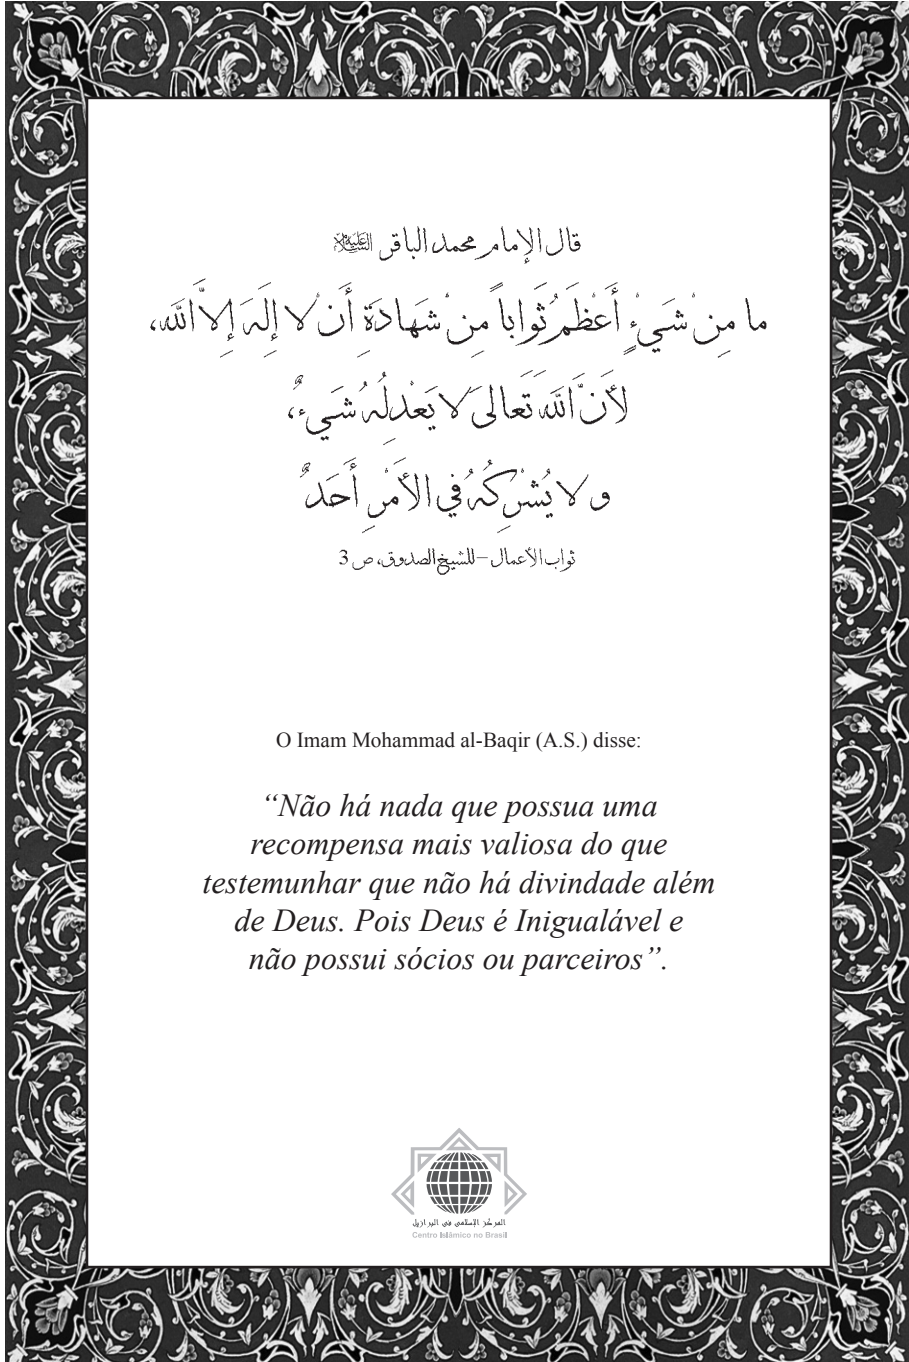 قال الإمام محمد الباقر عليه السلام
ما مِنْ شَيْءٍ أَعْظَمُ ثَواباً مِنْ شَهادَةِ أَنْ لا إِلَهَ إِلاَّ اللهُ،
لأَنَّ اللهَ تَعالىَ لا يَعْدِلُهُ شَيءٌ،
و لا يُشْرِكُهُ في الأَمْرِ أَحَدٌ
ثواب الأعمال – للشيخ الصدوق، ص 3
O Imam Mohammad al-Baqir (A.S.) disse:
“Não há nada que possua uma
recompensa mais valiosa do que
testemunhar que não há divindade além
de Deus. Pois Deus é Inigualável e
não possui sócios ou parceiros”.
المركز الإسلامي في البرازيل
Centro Islâmico no Brasil